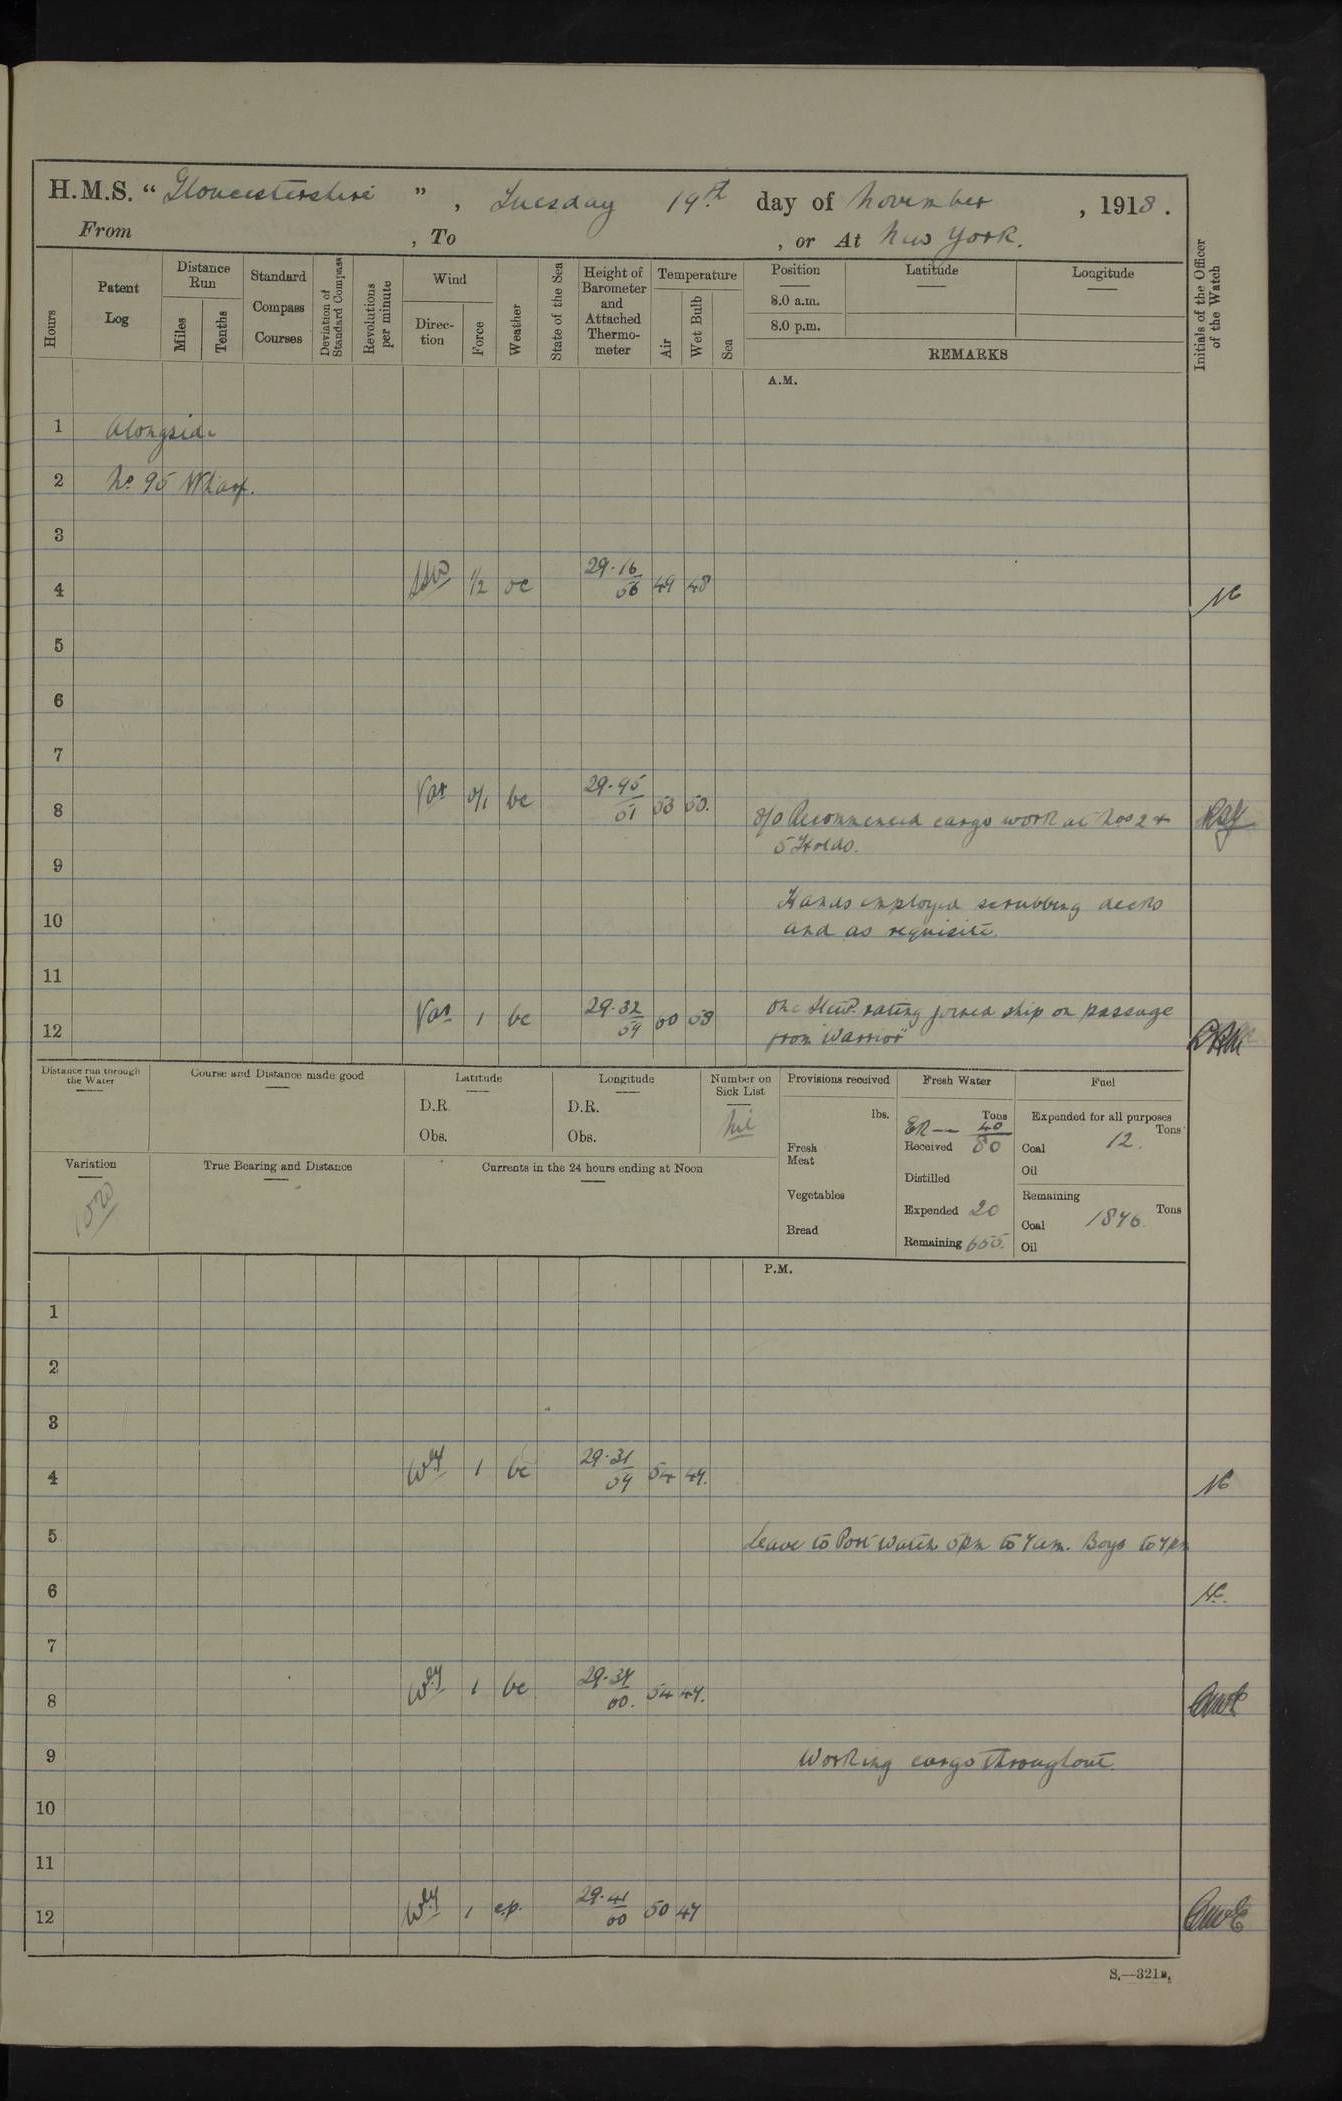 H.M.S. “ Gloucestershire ” , Tuesday 19th day of November , 1918 .
From , To , or At New York.
Hours
Patent Log
Distance Run
Miles
Tenths
Standard Compass Courses
Deviation of Standard Compass
Revolutions per minute
Wind
Direc-tion
Force
Weather
State of the Sea
Height of Barometer and Attached Thermo-meter
Temperature
Air
Wet Bulb
Sea
Position
8.0 a.m.
8.0 p.m.
Latitude
Longitude
REMARKS
Initials of the Officer of the Watch
A.M.
1 Alongside
2 No 95 Wharf.
3
4 SSW 1/2 oc 29.16 56 49 48
5
6
7
8 Var 0/1 bc 29.95 51 53 50.
8/0 Recommenced cargo work at Nos 2 +
5 Holds.
9
Hands employed scrubbing decks
10 and as requisite
11
12 Var 1 bc 29.32 59 60 58
One Stew'd rating joined ship on passage
from "Warrior"
Distance run through the Water
Course and Distance made good
Latitude
D.R.
Obs.
Longitude
D.R.
Obs.
Number on Sick List
nil
Provisions received
lbs.
Fresh Meat
Vegetables
Bread
Fresh Water
Tons
ER — 40
Received 80
Distilled
Expended 20
Remaining 655
Fuel
Expended for all purposes
Tons
Coal 12.
Oil
Remaining
Tons
Coal 1846
Oil
Variation
True Bearing and Distance
Currents in the 24 hours ending at Noon
P.M.
1
2
3
4 Wly 1 bc 29.31 59 54 47.
5 Leave to Port Watch 5pm to 7am. Boys to 9pm
6
7
8 Wly 1 bc 29.34 60. 54 47.
9 Working cargo throughout.
10
11
12 Wly 1 c.p. 29.41 60 50 47
S.—321B.